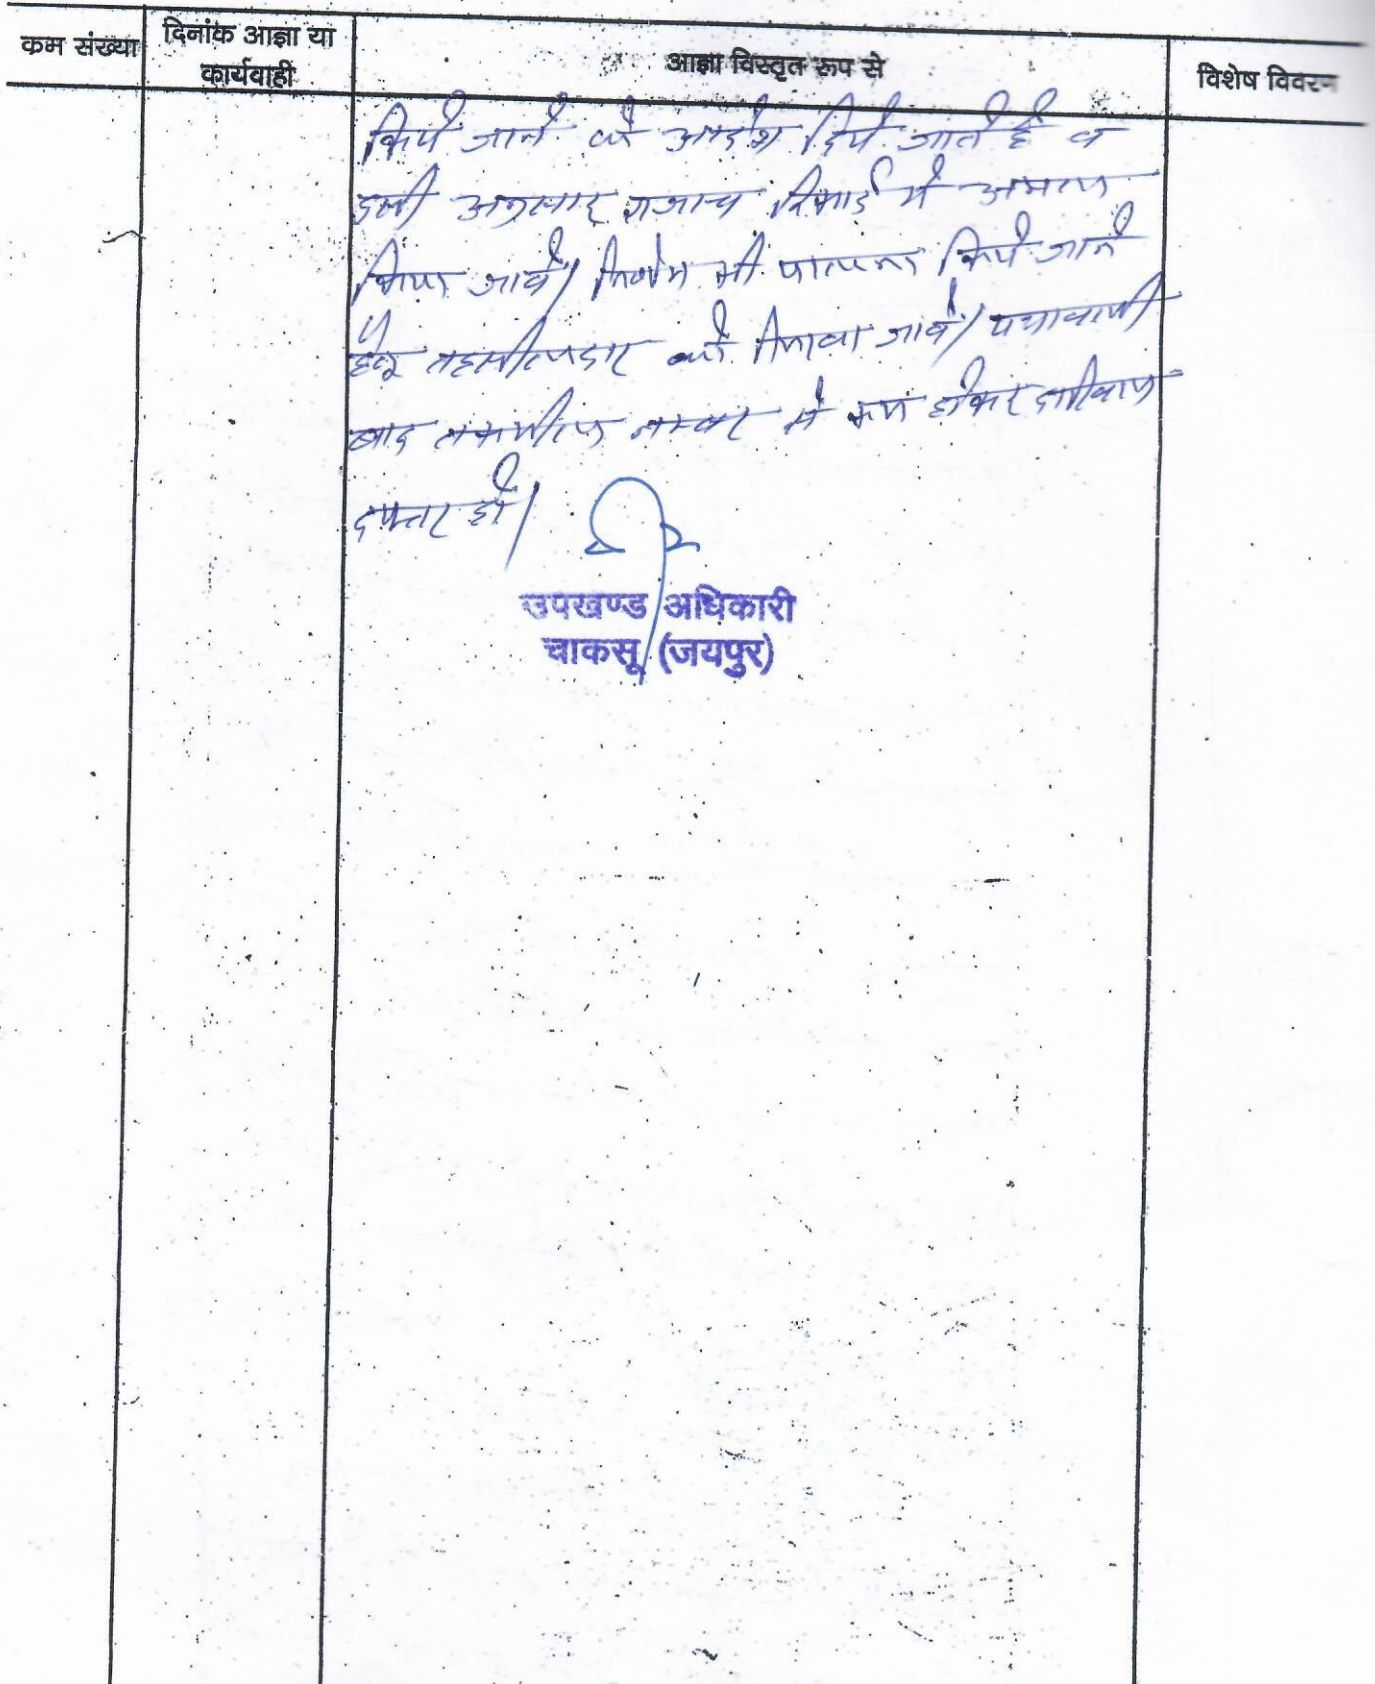 क्रम संख्या
दिनांक आज्ञा या
कार्यवाही
आज्ञा विस्तृत रूप से
विशेष विवरन
किये जाने के आदेश दिये जाते है व
इसी अनुसार राजस्व रिकार्ड में अमल
किया जावे। निर्णय की पालना किये जाने
हेतु तहसीलदार को लिखा जावे। पत्रावली
बाद तकमील नम्बर से कम होकर दाखिल
दफ्तर हो।
उपखण्ड अधिकारी
चाकसू (जयपुर)